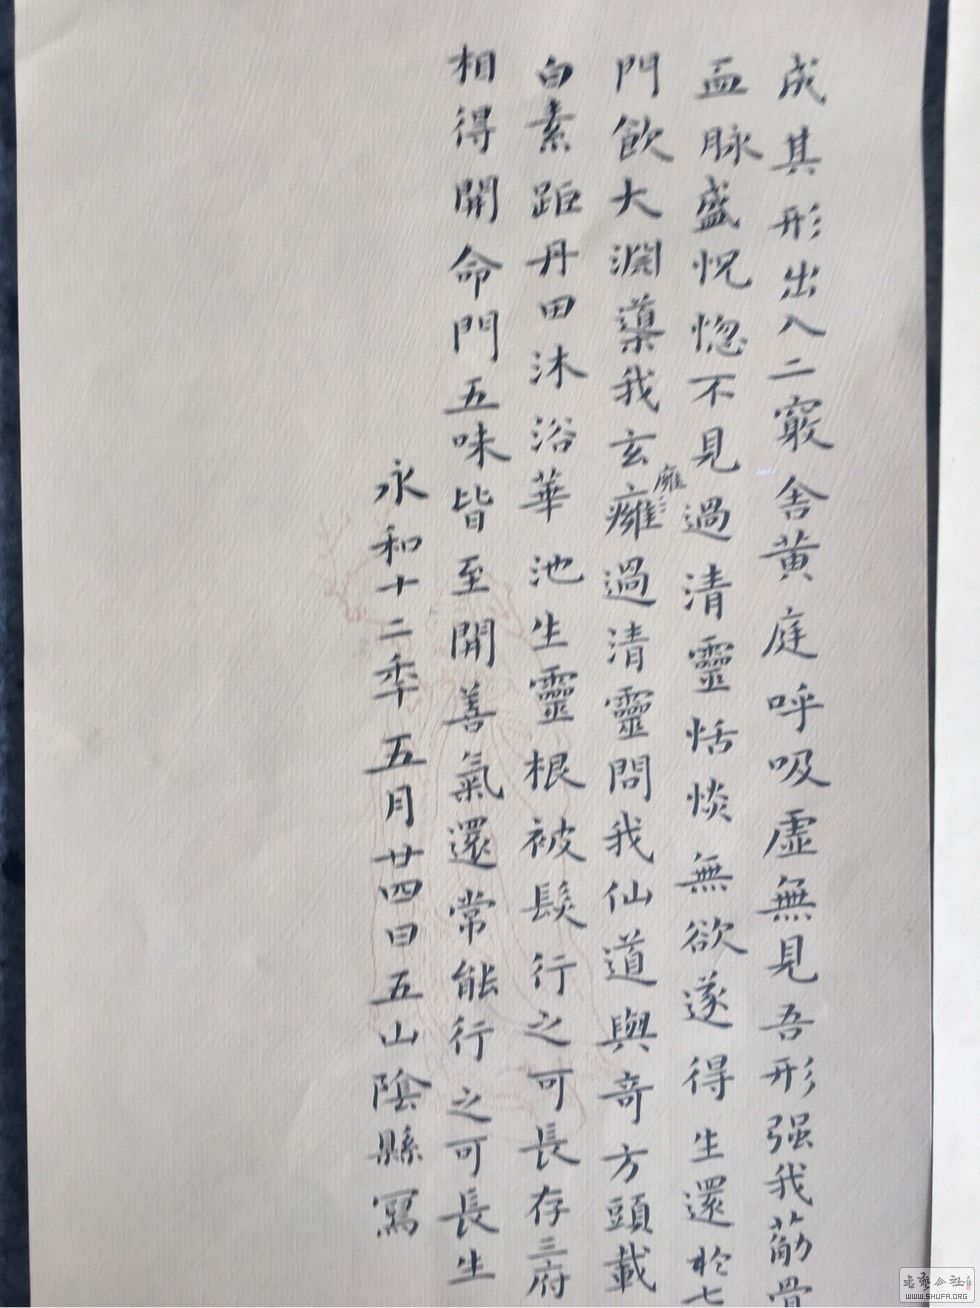 成其形出入二竅舍黃庭呼吸虛無見吾形强我筋骨
血脉盛怳惚不見過清靈恬惔無欲遂得生還於七
門飲大淵導我玄癰過清靈問我仙道與奇方頭載
癰
白素距丹田沐浴華池生靈根被髮行之可長存三府
相得開命門五味皆至開善氣還常能行之可長生
永和十二年五月廿四日五山陰縣寫
書藝公社
WWW.SHUFA.ORG